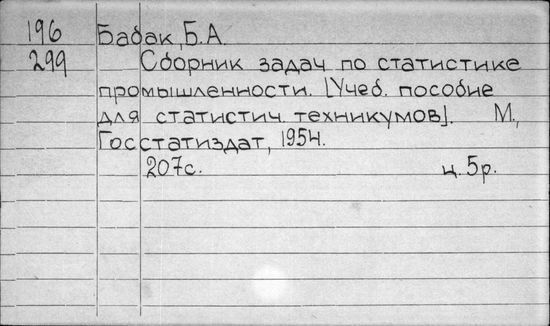 196 Бабак, Б.А.
299 Сборник задач по статистике
промышленности. [Учеб. пособие
для статистич. техникумов]. М.,
Госстатиздат, 1954.
207с. ц. 5р.